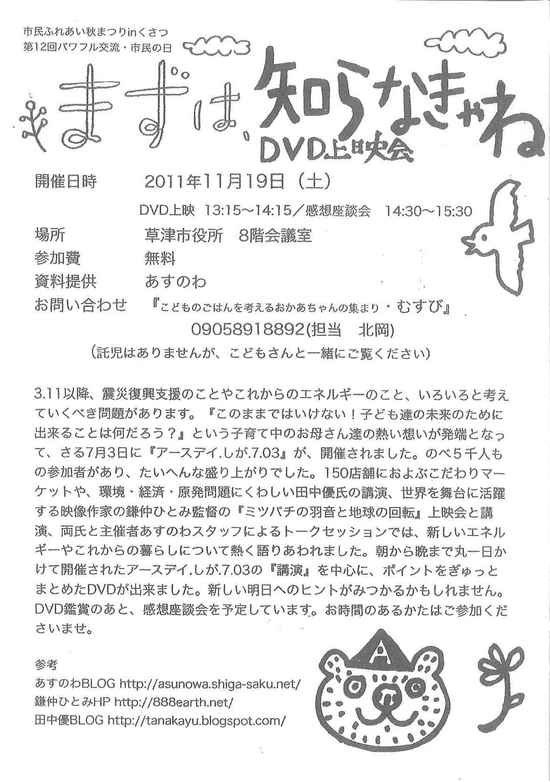 市民ふれあい秋まつりinくさつ
第12回パワフル交流・市民の日
まずは、知らなきゃね
DVD上映会
開催日時　2011年11月19日（土）
DVD上映　13:15〜14:15／感想座談会　14:30〜15:30
場所　草津市役所　8階会議室
参加費　無料
資料提供　あすのわ
お問い合わせ　『こどものごはんを考えるおかあちゃんの集まり・むすび』
09058918892(担当　北岡)
（託児はありませんが、こどもさんと一緒にご覧ください）
3.11以降、震災復興支援のことやこれからのエネルギーのこと、いろいろと考え
ていくべき問題があります。『このままではいけない！子ども達の未来のために
出来ることは何だろう？』という子育て中のお母さん達の熱い想いが発端となっ
て、さる7月3日に『アースデイ.しが.7.03』が、開催されました。のべ５千人も
の参加者があり、たいへんな盛り上がりでした。150店舗におよぶこだわりマー
ケットや、環境・経済・原発問題にくわしい田中優氏の講演、世界を舞台に活躍
する映像作家の鎌仲ひとみ監督の『ミツバチの羽音と地球の回転』上映会と講
演、両氏と主催者あすのわスタッフによるトークセッションでは、新しいエネル
ギーやこれからの暮らしについて熱く語りあわれました。朝から晩まで丸一日か
けて開催されたアースデイ.しが.7.03の『講演』を中心に、ポイントをぎゅっと
まとめたDVDが出来ました。新しい明日へのヒントがみつかるかもしれません。
DVD鑑賞のあと、感想座談会を予定しています。お時間のあるかたはご参加くだ
さいませ。
参考
あすのわBLOG http://asunowa.shiga-saku.net/
鎌仲ひとみHP http://888earth.net/
田中優BLOG http://tanakayu.blogspot.com/
A